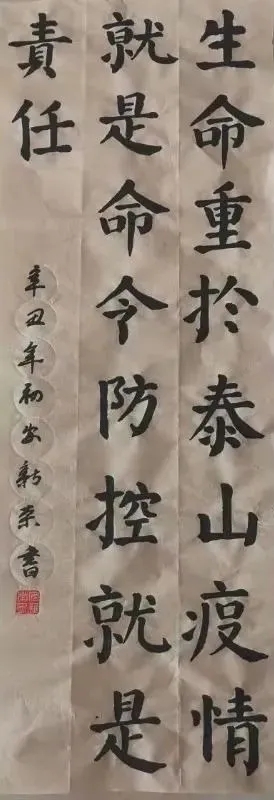 生命重於泰山疫情
就是命令防控就是
責任
辛丑年初安新荣書